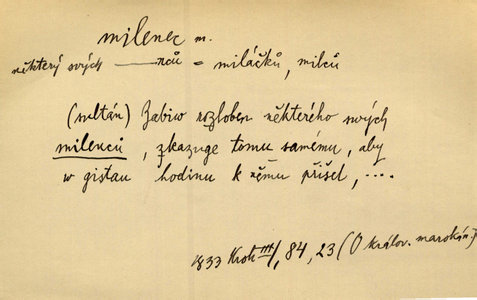 milenec m.
některý svých ——nců = miláčků, milců
(sultán) Zabiw rozloben některého swých
milenců, zkazuge tomu samému, aby
w gistau hodinu k němu přišel, ....
1833 Krok III/1, 84, 23 (O králov. marokán.)